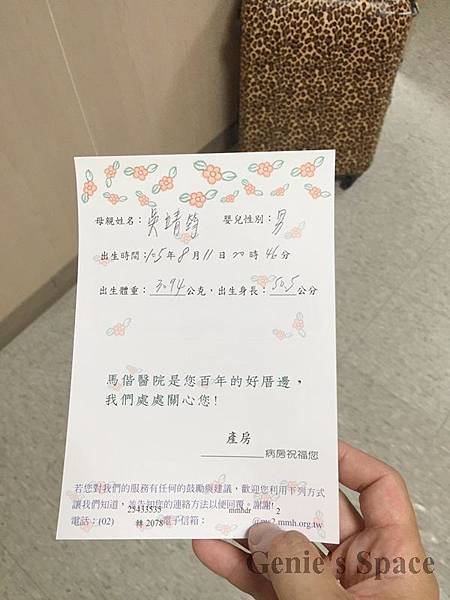 母親姓名：吳靖鈞 嬰兒性別：男
出生時間：105年8月11日20時46分
出生體重：3094公克，出生身長：50.5公分
馬偕醫院是您百年的好厝邊，
我們處處關心您!
產房
病房祝福您
若您對我們的服務有任何的鼓勵與建議，歡迎您利用下列方式
讓我們知道，並告知您的連絡方法以便回覆，謝謝!
電話：(02) 25433535 轉 2078 電子信箱： mmhdr 2 @ms2.mmh.org.tw
Genie's Space